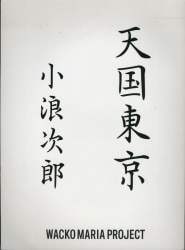 天国東京
小浪次郎
WACKO MARIA PROJECT